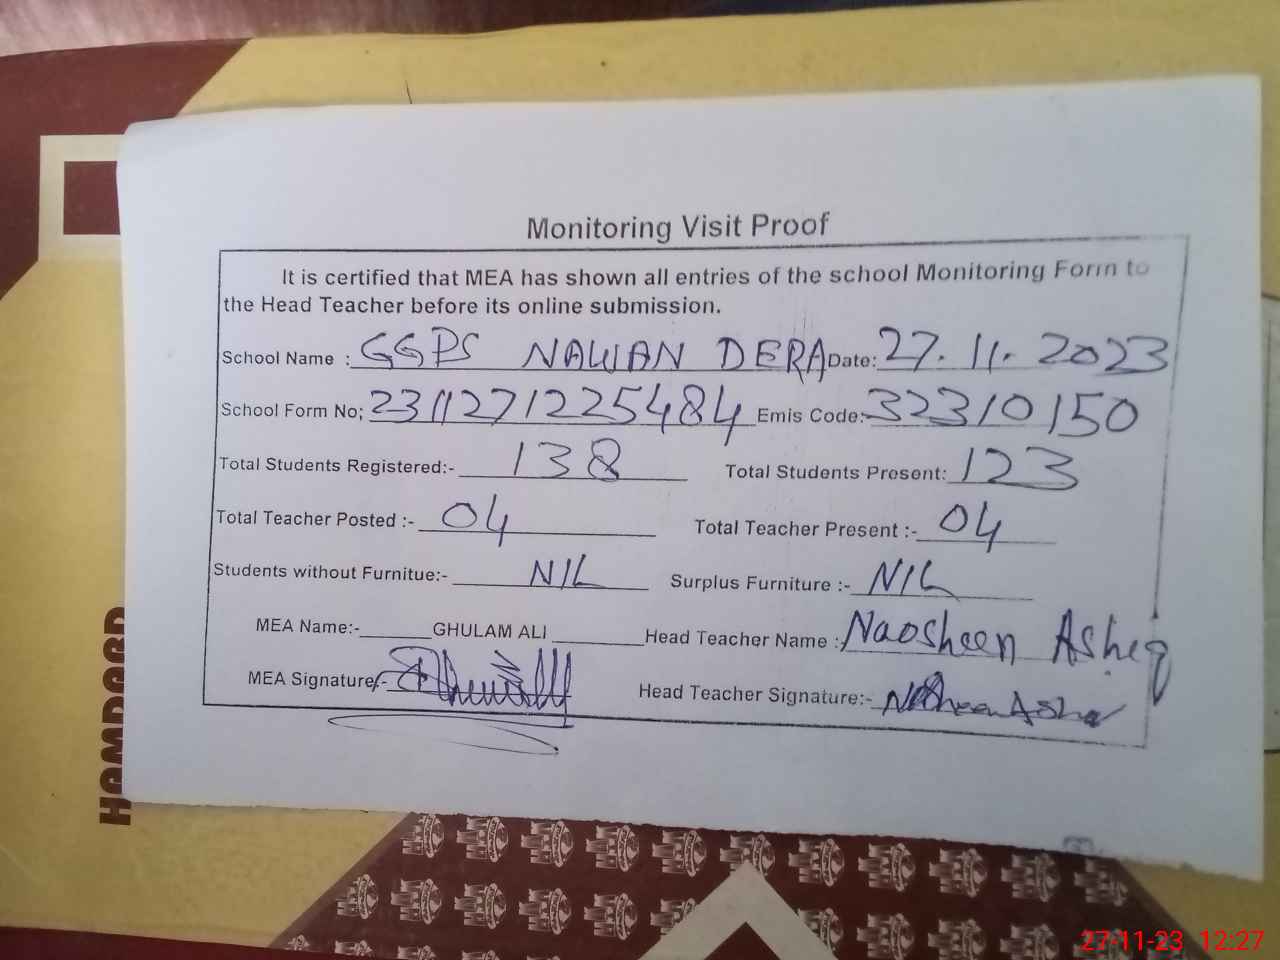 Monitoring Visit Proof
It is certified that MEA has shown all entries of the school Monitoring Form to
the Head Teacher before its online submission.
School Name : GGPS NAWAN DERA Date: 27.11.2023
School Form No; 2311271225484 Emis Code:- 32310150
Total Students Registered:- 138 Total Students Present: 123
Total Teacher Posted :- 04 Total Teacher Present :- 04
Students without Furnitue:- NIL Surplus Furniture :- NIL
MEA Name:- GHULAM ALI Head Teacher Name : Naosheen Asheq
MEA Signature:- Head Teacher Signature:-
HAMDARD
27-11-23 12:27